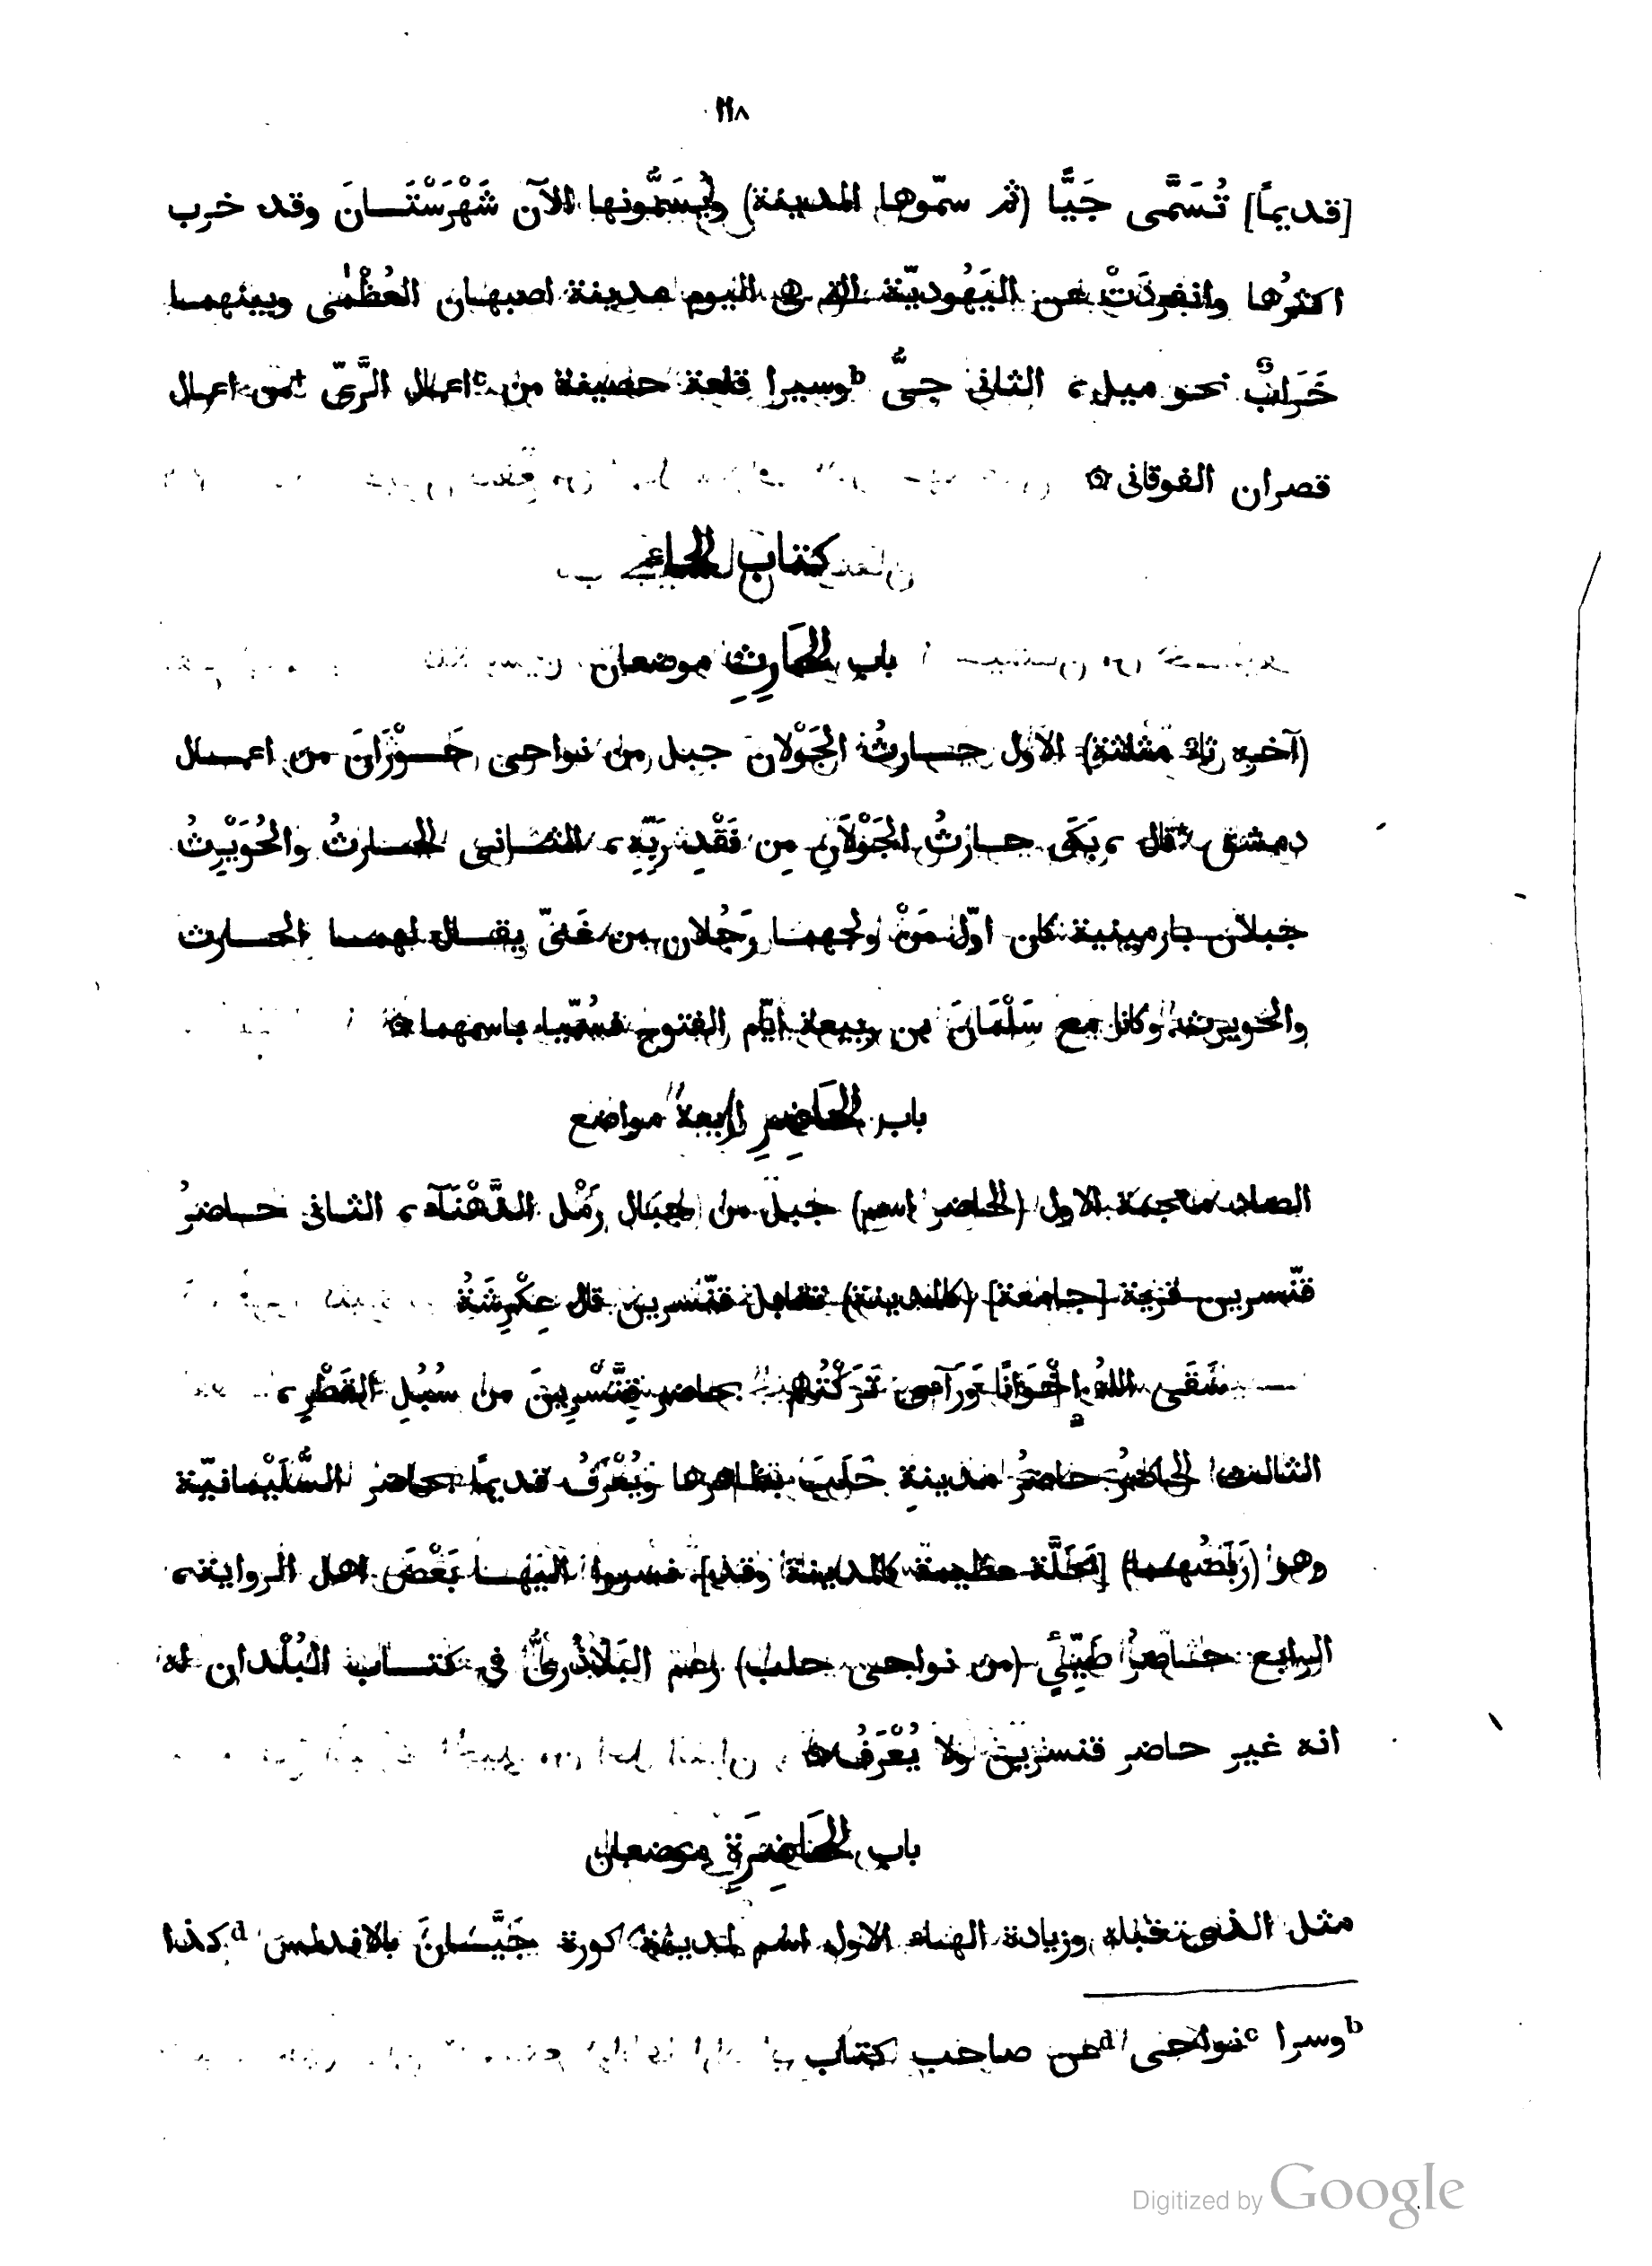 ١١٨
[قديمًا] تُسَمَّى جَيًّا (ثم سمّوها المدينة) ويُسَمُّونها الآن شَهْرَسْتَـانَ وقد خرب
اكثرُها وانفردَتْ عن اليَهُوديّة التى هى اليوم مدينة اصبهان العُظْمَى وبينهما
خَرَابٌ نحو ميل، الثانى جىُّ bوسيرا قلعة حصينة من cاعمال الرَّىّ †من اعمال
قصران الفوقانى ۞
كتاب الحاء
باب الحَارِثِ موضعان
(آخره ثاء مثلثة) الاول حارثُ الجَوْلان جبل من نواحى حَوْرَانَ من اعمال
دمشق †قال، بَكَى حارثُ الجَوْلَانِ مِن فَقْدِ رَبِّهِ، الثانى الحارثُ والحُوَيْرِثُ
جبلان بارمينية كان اوّلَ مَنْ ولجهما رَجُلان من غَنىّ يقال لهما الحارث
والحويرث وكانا مع سَلْمَانَ بن ربيعة ايّام الفتوح فسُمّيا باسمهما ۞
باب الحَاضِرِ اربعة مواضع
الضاد معجمة الاول (الحاضر اسم) جبل من جبال رَمْل الدَّهْنَآء، الثانى حاضرُ
قنّسرين قرية [جامعة] (كالمدينة) تقابل قنّسرين قال عِكْرِشَةُ
سَقَى اللهُ إِخْوَانًا وَرَآءى تَرَكْتُهم بحاضر قِنَّسْرِينَ من سُبُلِ القَطْرِ،
الثالث الحاضرُ حاضرُ مدينةِ حَلَبَ بظاهرها ويُعْرَفُ قديمًا بحاضر السُّلَيْمانيّة
وهو (رَبَضُهما) [مَحَلَّة عظيمة كالمدينة وقد] نسبوا اليها بَعْضَ اهل الرواية،
الرابع حاضرُ طَيِّئٍ (من نواحى حلب) زعم البَلَاذُرىُّ فى كتاب البُلْدان له
انه غير حاضر قنسرين ولا يُعْرَفُ ۞
باب الحَاضِرَةِ موضعان
مثل الذى قبله وزيادة الهاء الاول اسم لمدينة كورة جَيَّانَ بالاندلس dكذا
bوسرا cنواحى dعن صاحب كتاب
Digitized by Google